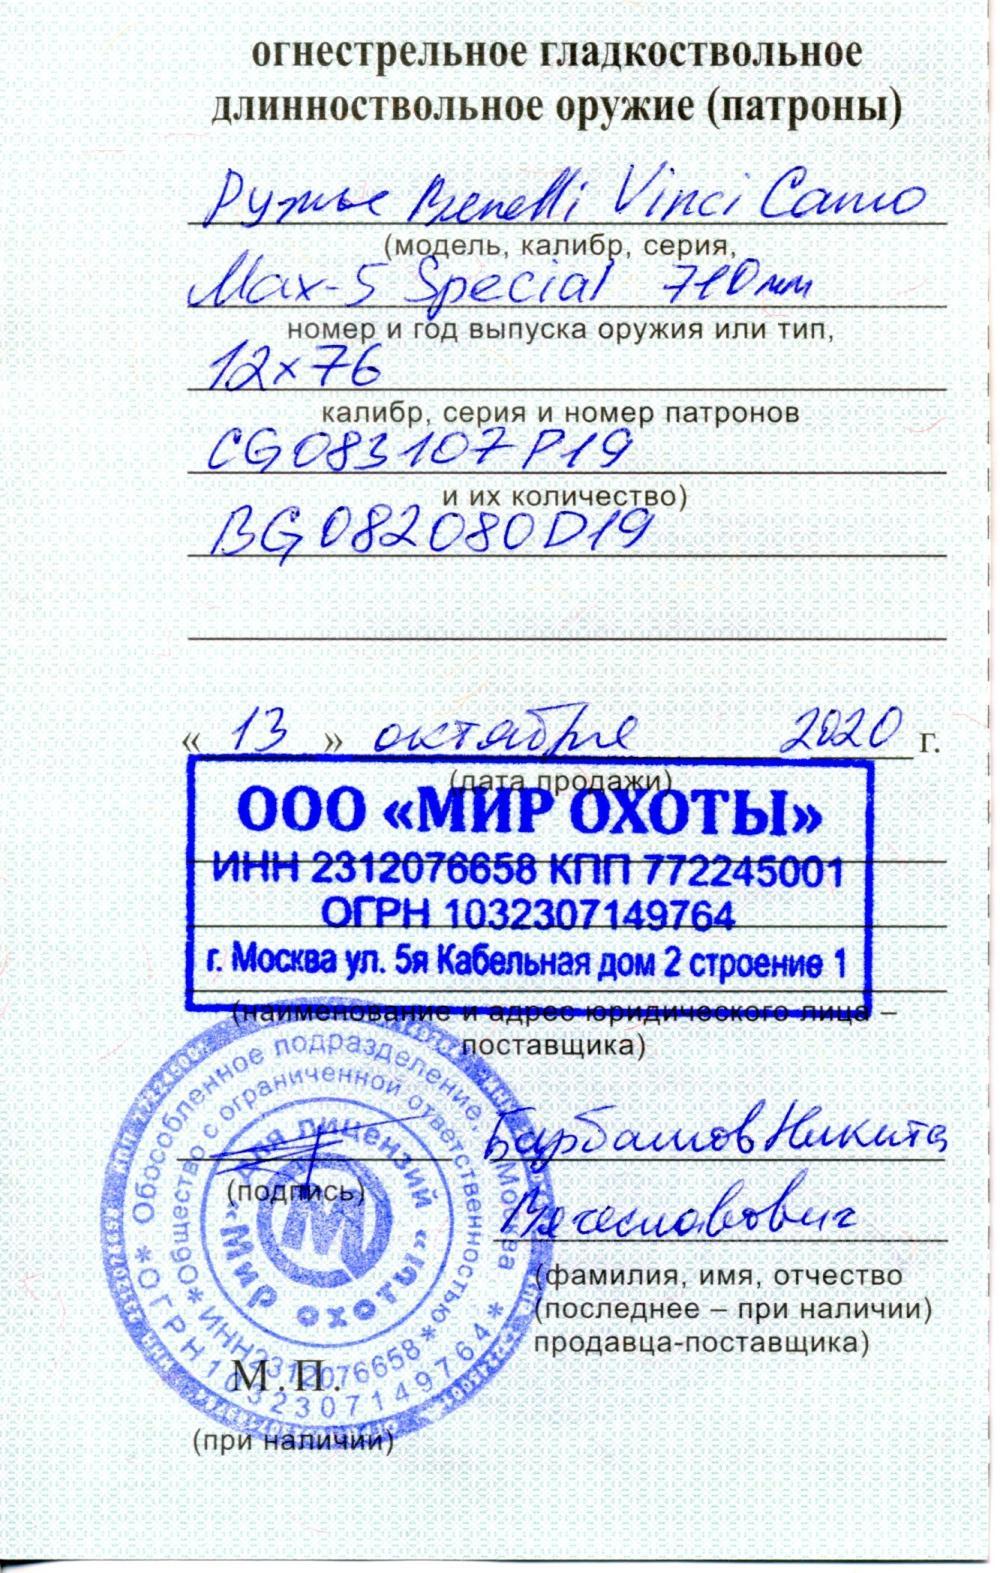 огнестрельное гладкоствольное
длинноствольное оружие (патроны)
Ружье Benelli Vinci Camo
(модель, калибр, серия,
Max-5 Special 710мм
номер и год выпуска оружия или тип,
12x76
калибр, серия и номер патронов
CG083107P19
и их количество)
BG082080D19
« 13 » октября 2020 г.
(дата продажи)
ООО «МИР ОХОТЫ»
ИНН 2312076658 КПП 772245001
ОГРН 1032307149764
г. Москва ул. 5я Кабельная дом 2 строение 1
(наименование и адрес юридического лица –
поставщика)
Обособленное подразделение, г. Москва
*Общество с ограниченной ответственностью*
Для лицензий
"Мир охоты"
ИНН2312076658
*ОГРН1032307149764*
Барбашов Никита
(подпись)
Вячеславович
(фамилия, имя, отчество
(последнее – при наличии)
продавца-поставщика)
М.П.
(при наличии)